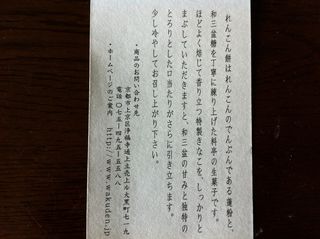 れんこん餅はれんこんのでんぷんである蓮粉と、
和三盆糖を丁寧に練り上げた料亭の生菓子です。
ほどよく焙じて香り立つ特製きなこを、しっかりと
まぶしていただきますと、和三盆の甘みと独特の
とろりとした口当たりがさらに引き立ちます。
少し冷やしてお召し上がり下さい。
・商品のお問い合わせ先
京都市上京区浄福寺通上立売上ル大黒町七一九
電話〇七五-四九五-五五八八
・ホームページのご案内
http://www.wakuden.jp